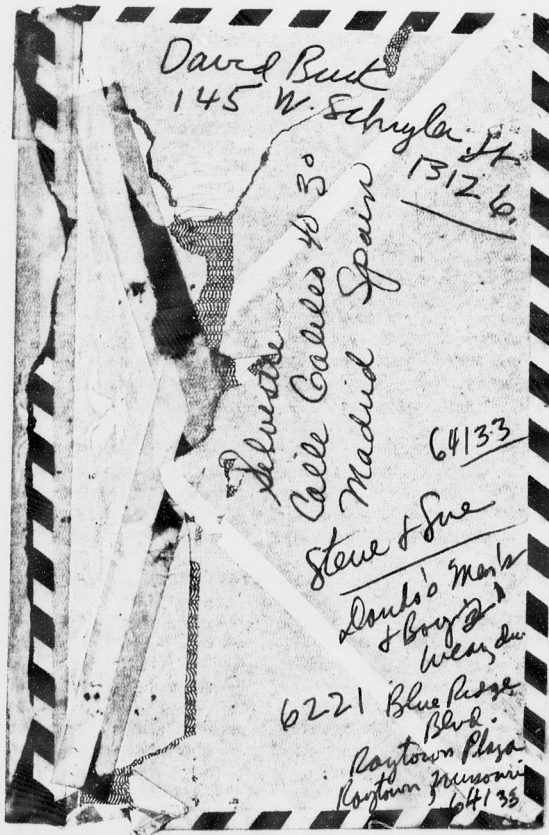 David Burt
145 W. Schuyler St
13126.
Silvestre
Calle Galileo 40 3°
Madrid Spain
64133
Steve & Sue
Dondo's Men's
& Boy's
Wear
6221 Blue Ridge
Blvd.
Raytown Plaza
Raytown Missouri
64133